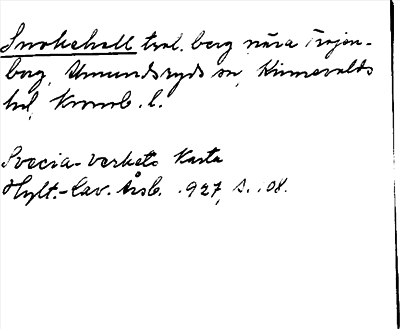 Snokehall trol. berg nära Trojen-
borg, Umundsryds sn, Kinnevalds
hd, Kronob. l.
Svecia-verkets Karta
Hylt.-Cav. Årsb. 1927, s. 108.